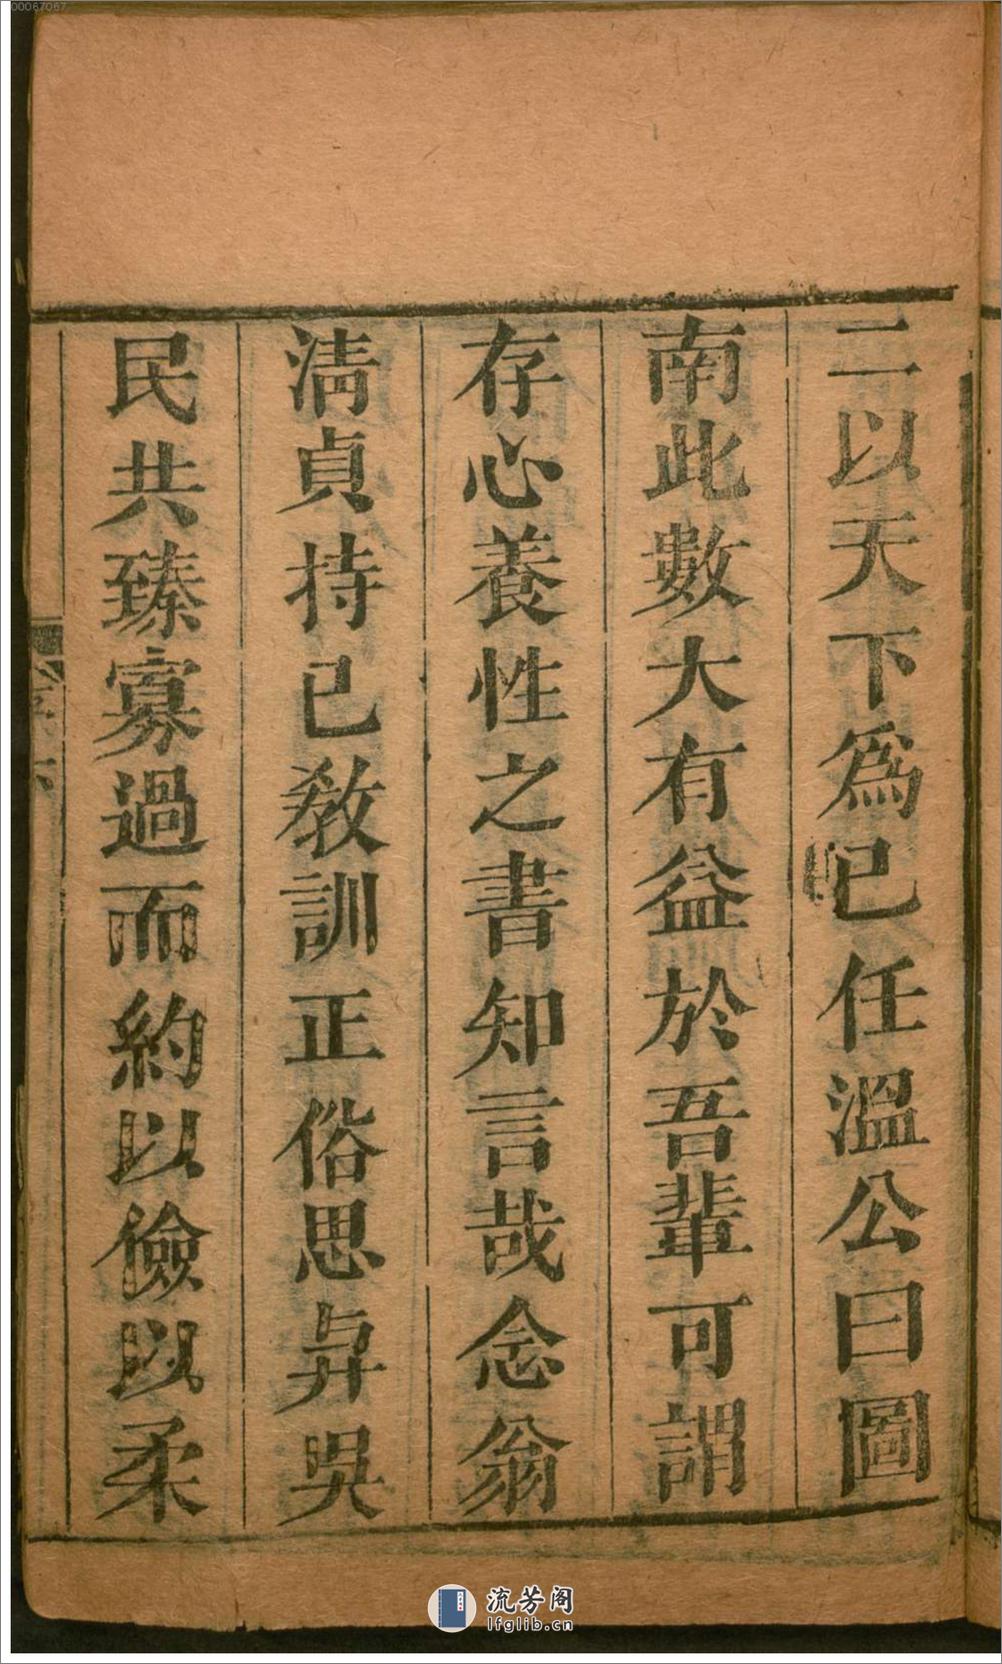 二以天下爲己任溫公曰圖
南此數大有益於吾輩可謂
存心養性之書知言哉念翁
淸貞持己敎訓正俗思與吳
民共臻寡過而約以儉以柔
00067067
流芳阁
lfglib.cn